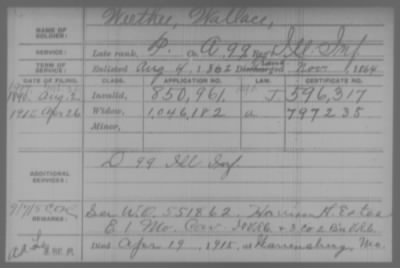 NAME OF SOLDIER: Weethee, Wallace,
SERVICE: Late rank, P. Co. A, 99 Reg't Ill Inf
TERM OF SERVICE: Enlisted Aug 4, 1862 Discharged Nov, 1864
DATE OF FILING. CLASS. APPLICATION NO. LAW. CERTIFICATE NO.
1890 Aug 2 Invalid, 850,961 J 596,317
1915 Apr 26 Widow, 1,046,182 a 797235
Minor,
ADDITIONAL SERVICES: D 99 Ill Inf
REMARKS: See W.O. 551862 Harrison H. Estes
E 1 Mo. Cav
Died Apr 19, 1915, at Warrensburg, Mo.